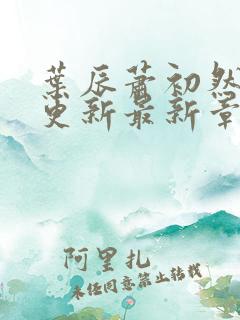 葉辰蕭初然
更新最新章
阿里扎
未经同意禁止转载